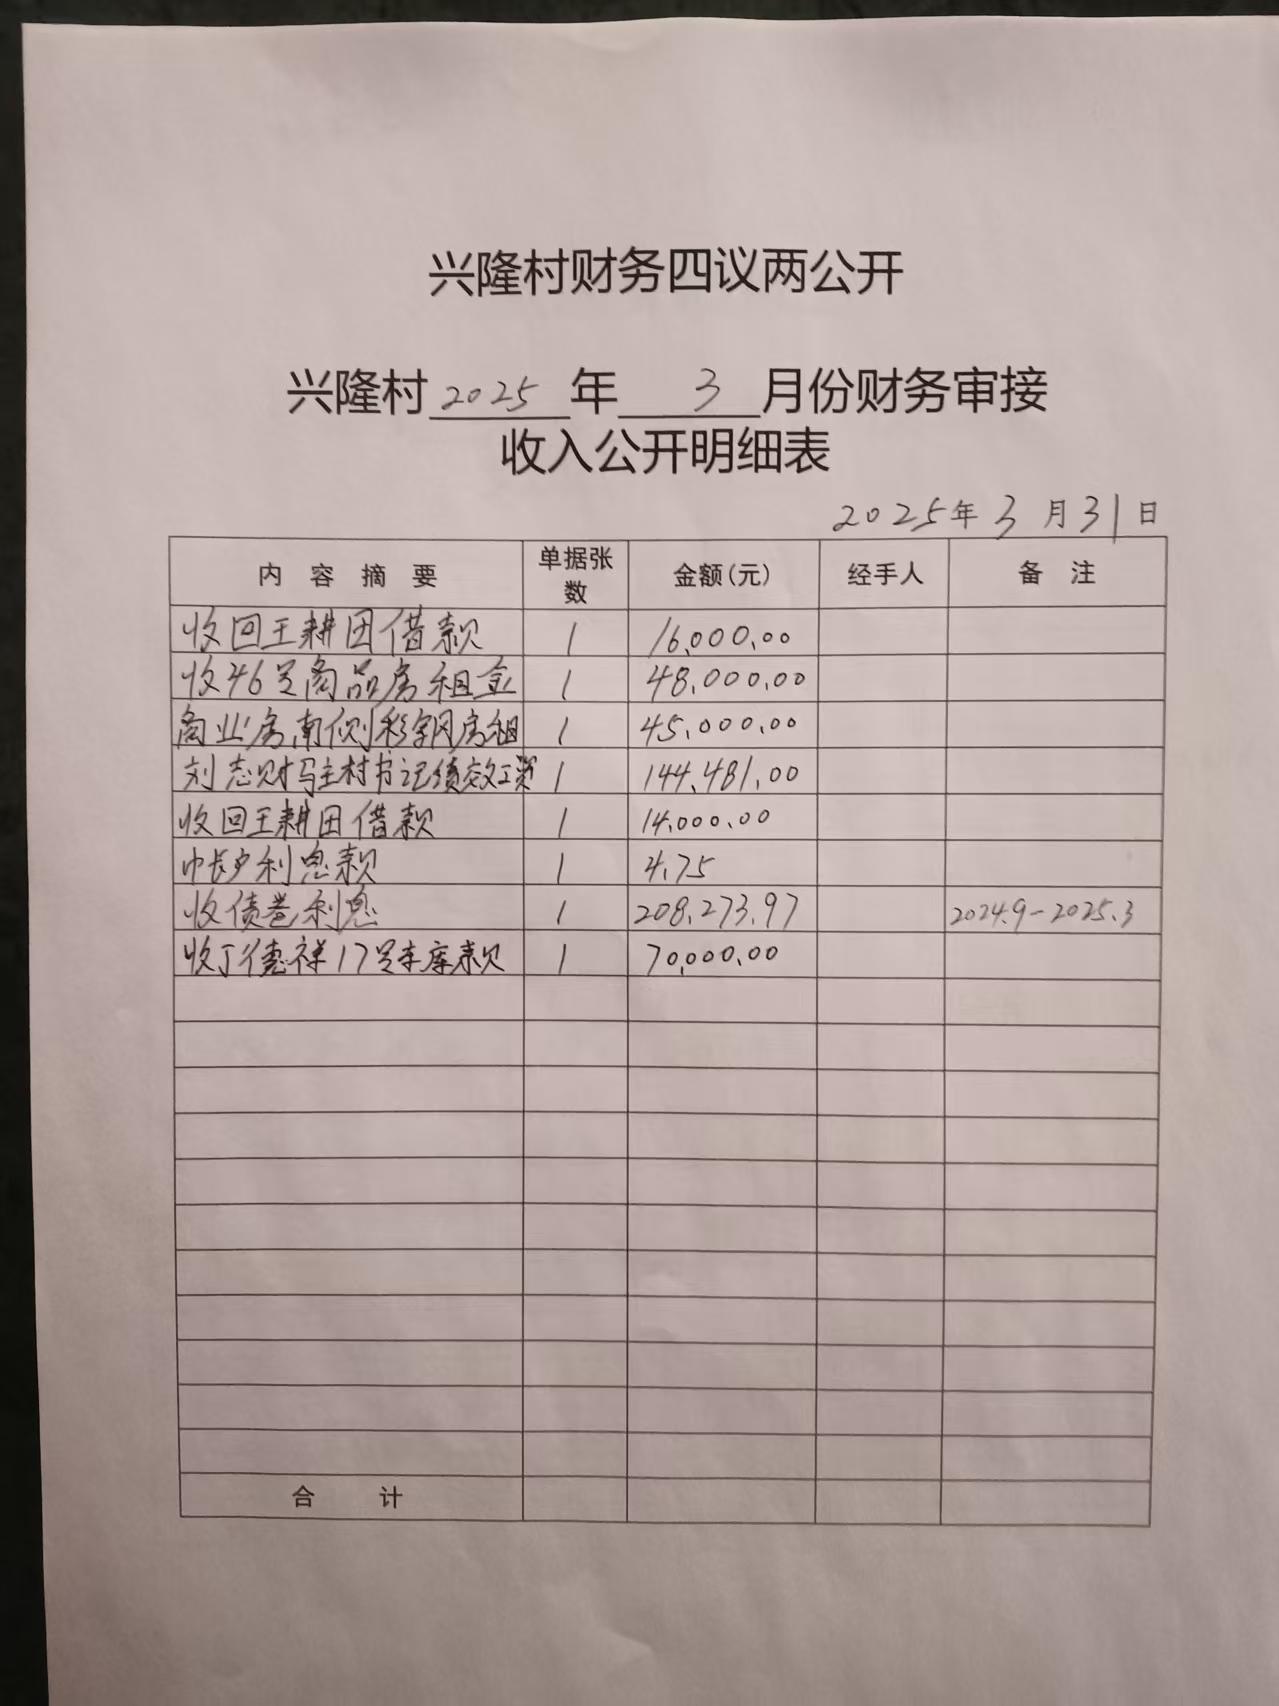 兴隆村财务四议两公开
兴隆村2025年3月份财务审接
收入公开明细表
2025年3月31日
内容摘要 单据张数 金额(元) 经手人 备注
收回王耕田借款 1 16,000.00
收46号商品房租金 1 48,000.00
商业房南侧移字网房租 1 45,000.00
刘志财驻村书记绩效工资 1 144,481.00
收回王耕田借款 1 14,000.00
帐户利息款 1 4.75
收债卷利息 1 208,273.97 2024.9-2025.3
收丁德祥17号车库款 1 70,000.00
合计